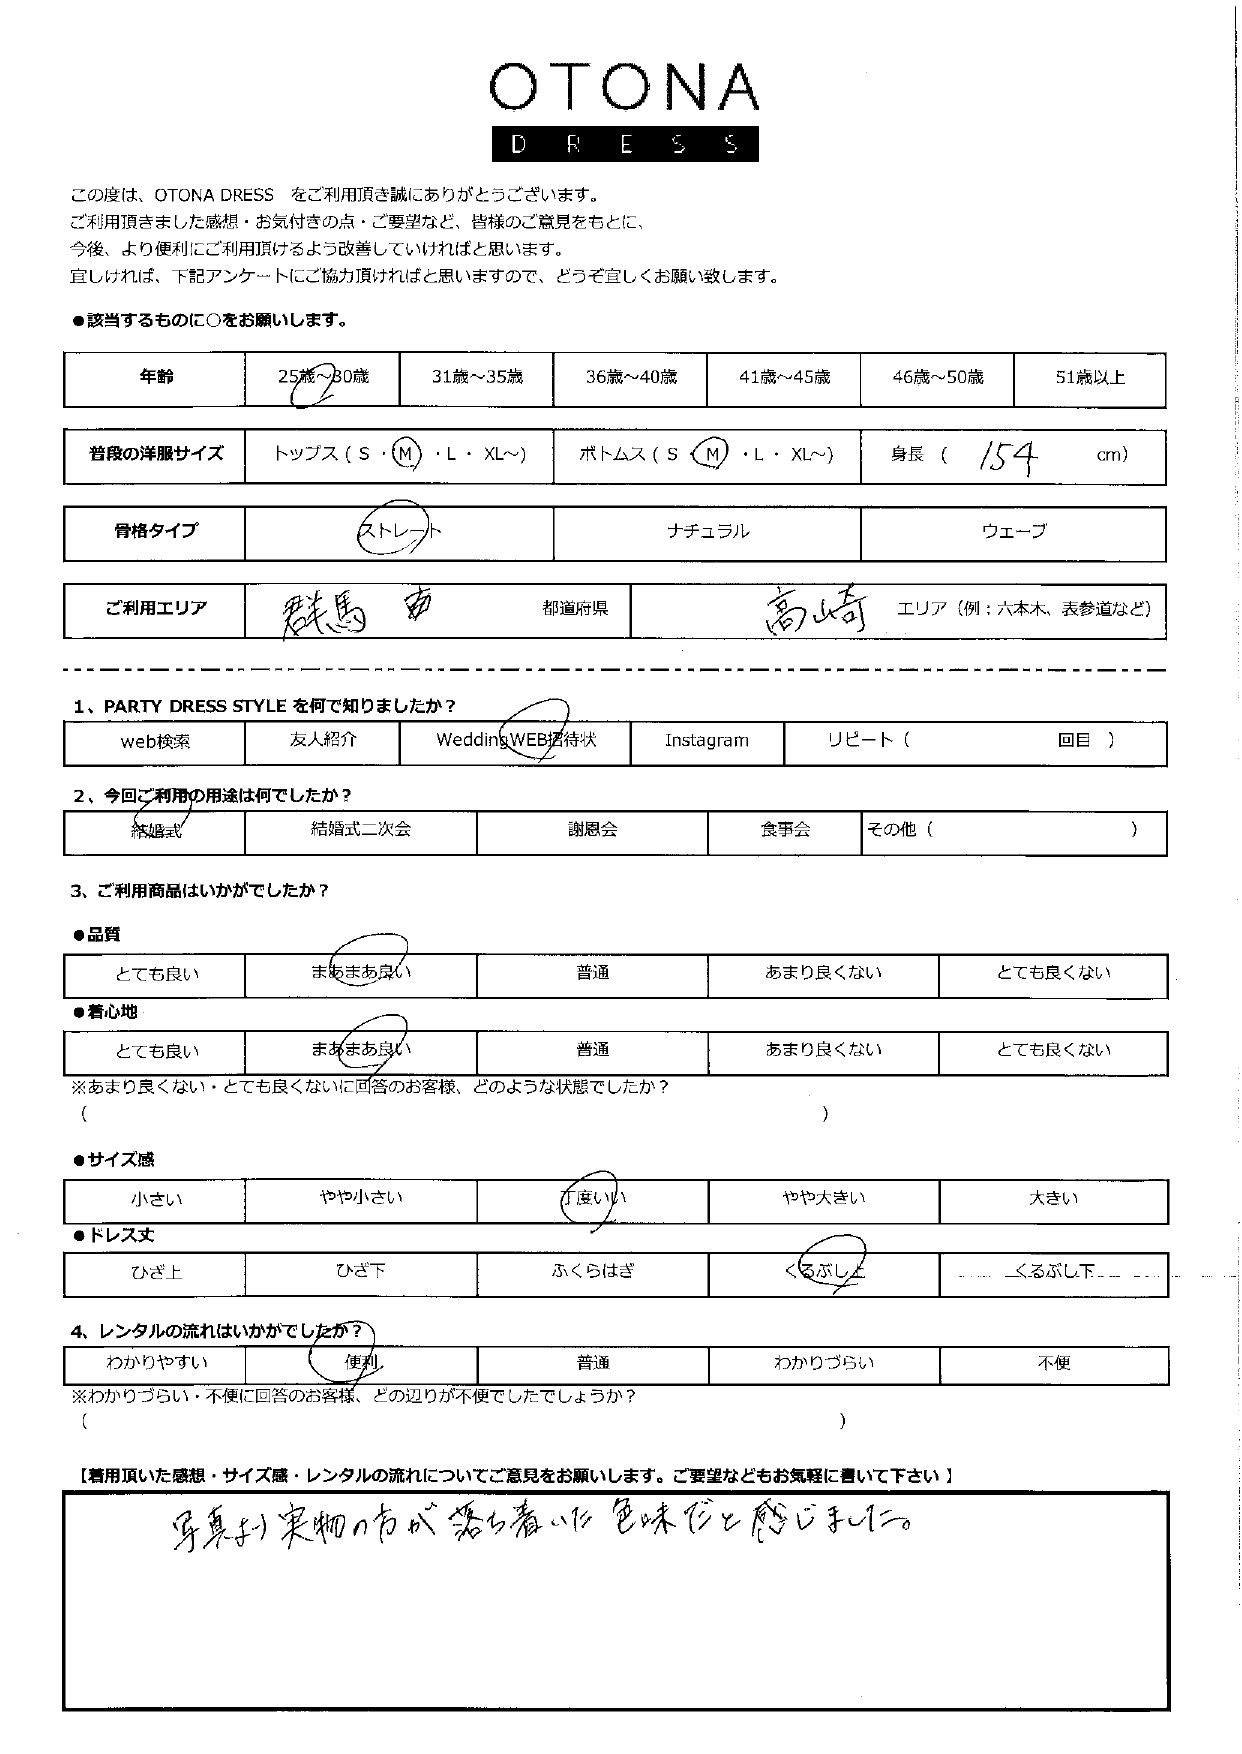 OTONA
DRESS
この度は、OTONA DRESS　をご利用頂き誠にありがとうございます。
ご利用頂きました感想・お気付きの点・ご要望など、皆様のご意見をもとに、
今後、より便利にご利用頂けるよう改善していければと思います。
宜しければ、下記アンケートにご協力頂ければと思いますので、どうぞ宜しくお願い致します。
●該当するものに○をお願いします。
年齢 25歳～30歳 31歳～35歳 36歳～40歳 41歳～45歳 46歳～50歳 51歳以上
普段の洋服サイズ トップス（ S ・ M ・ L ・ XL～） ボトムス（ S ・ M ・ L ・ XL～） 身長 （ 154 cm）
骨格タイプ ストレート ナチュラル ウェーブ
ご利用エリア 群馬 都道府県 高崎 エリア（例：六本木、表参道など）
1、PARTY DRESS STYLE を何で知りましたか？
web検索 友人紹介 WeddingWEB招待状 Instagram リピート（ 回目 ）
2、今回ご利用の用途は何でしたか？
結婚式 結婚式二次会 謝恩会 食事会 その他（ ）
3、ご利用商品はいかがでしたか？
●品質
とても良い まあまあ良い 普通 あまり良くない とても良くない
●着心地
とても良い まあまあ良い 普通 あまり良くない とても良くない
※あまり良くない・とても良くないに回答のお客様、どのような状態でしたか？
（ ）
●サイズ感
小さい やや小さい 丁度いい やや大きい 大きい
●ドレス丈
ひざ上 ひざ下 ふくらはぎ くるぶし上 くるぶし下
4、レンタルの流れはいかがでしたか？
わかりやすい 便利 普通 わかりづらい 不便
※わかりづらい・不便に回答のお客様、どの辺りが不便でしたでしょうか？
（ ）
【着用頂いた感想・サイズ感・レンタルの流れについてご意見をお願いします。ご要望などもお気軽に書いて下さい 】
写真より実物の方が落ち着いた色味だと感じました。